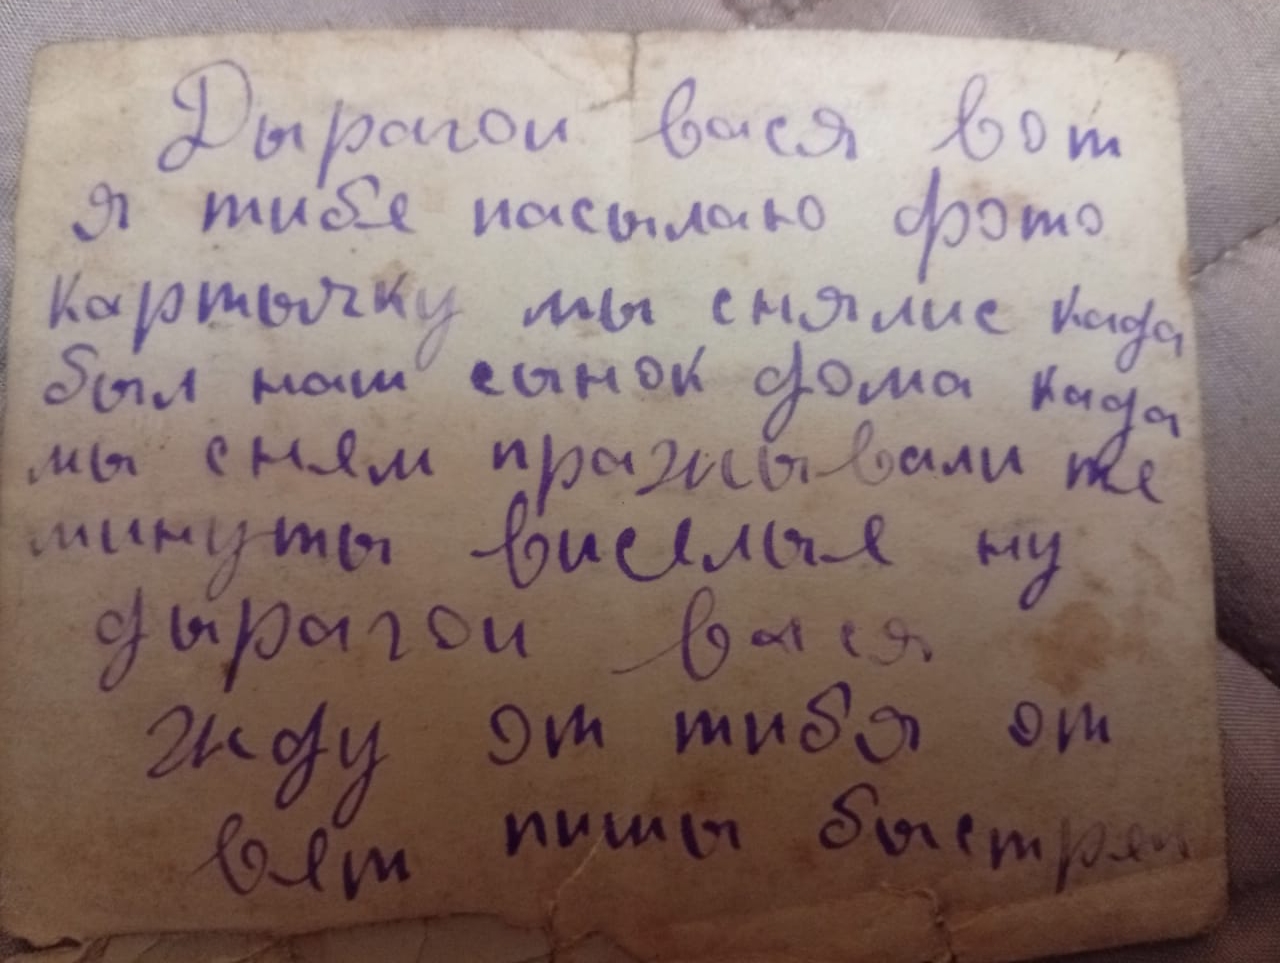 Дырагои вася вот
я тибе пасылаю фото
картычку мы снялис када
был наш сынок дома када
мы снем пражывали те
минуты виселые ну
дырагои вася
жду от тибя от
вет пишы быстреи